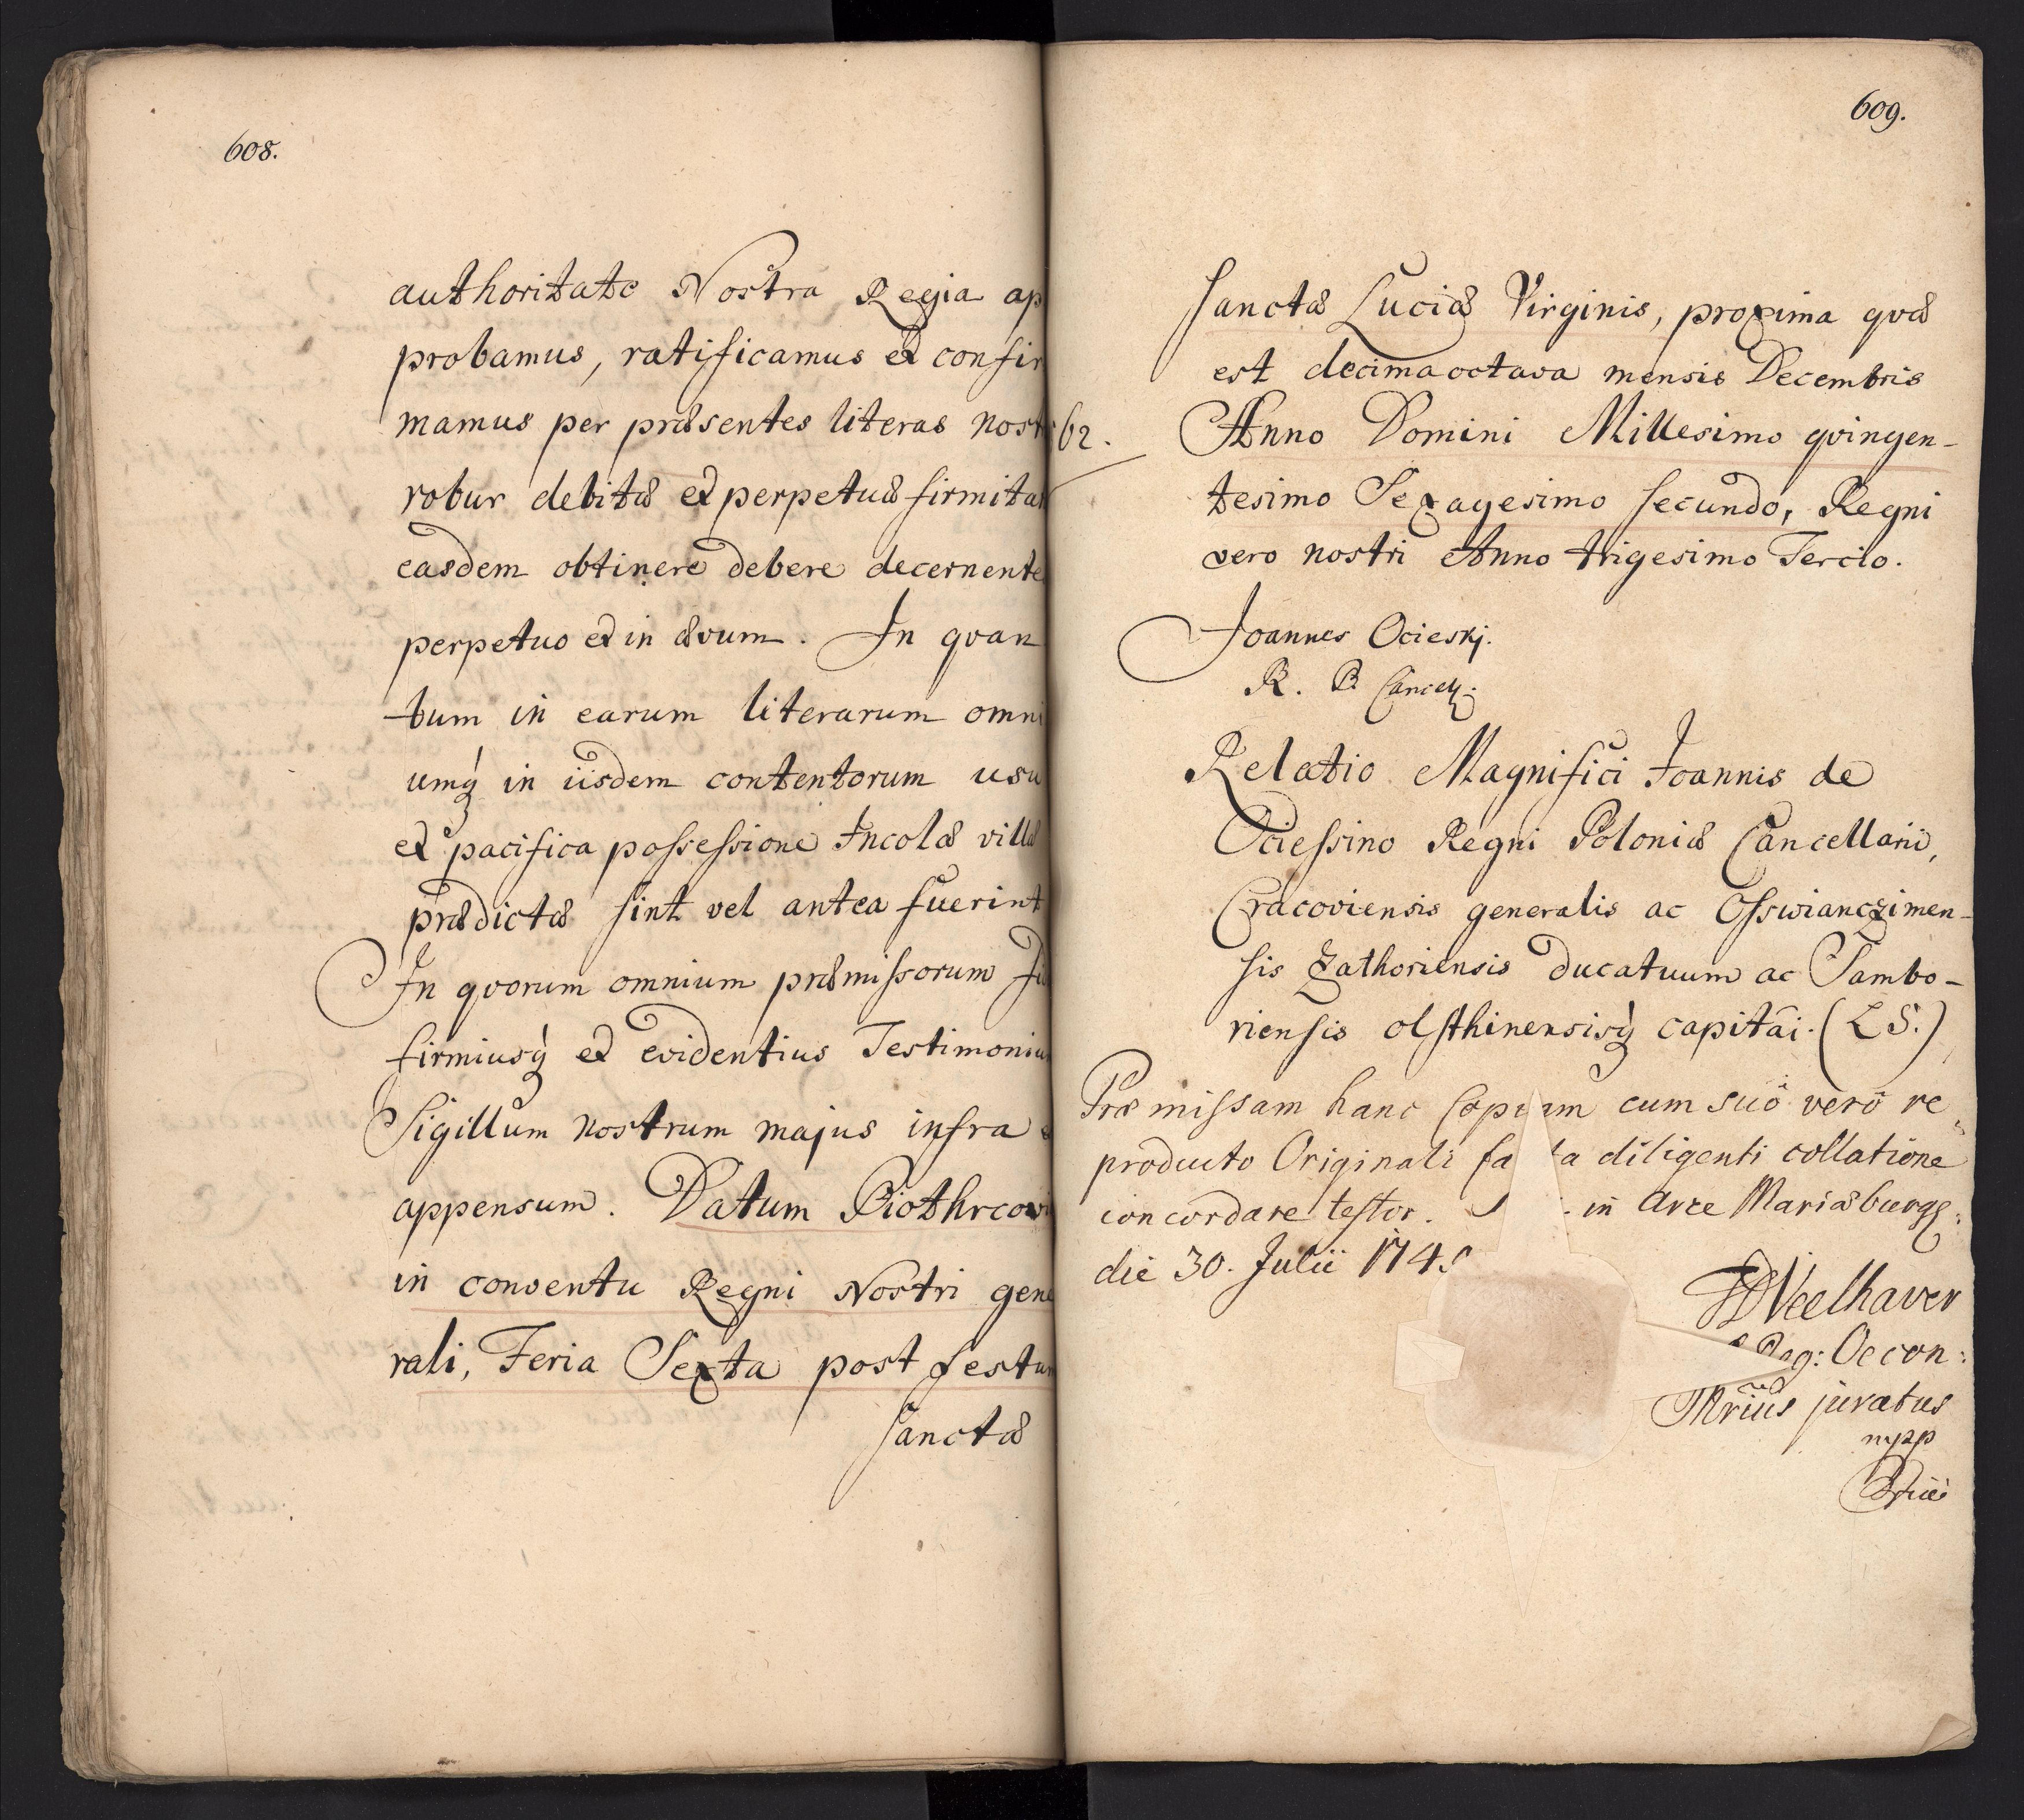 608.
authoritate Nostra Regia ap
probamus, ratificamus et confir
mamus per præsentes literas nost
robur debitæ et perpetuæ firmita
easdem obtinere debere decernente
perpetuo et in ævum. In qvan
tum in earum literarum omni
umq́ in iisdem contentorum usu
et pacifica possessione Incolæ villæ
prædictæ sint vel antea fuerint
In qvorum omnium præmissorum
firmiusq́ et evidentius Testimoniu
Sigillum nostrum majus infra
appensum. Datum Piothrcovi
in conventu Regni Nostri gene
rali, Feria Sexta post festum
sanctæ
609.
Sanctæ Luciæ Virginis, proxima qvæ
est decima octava mensis Decembris
62. Anno Domini Millesimo qvingen-
tesimo Sexagesimo secundo, Regni
vero nostri Anno trigesimo Tercio.
Joannes Ocieskj.
R. P. Cancell:
Relatio Magnifici Joannis de
Ociessino Regni Poloniæ Cancellarii,
Cracoviensis generalis ac Osswianczimen-
sis Zathoriensis ducatuum ac Sambo-
riensis olsthinensisq́ capitāi. (L S.)
Præmissam hanc Copiam cum suo verō re
producto Originali facta diligenti collatione
concordare testor. in Arce Mariæburg:
die 30. Julii 174
Neelhaver
Reg: Oecon:
juratus
mpp